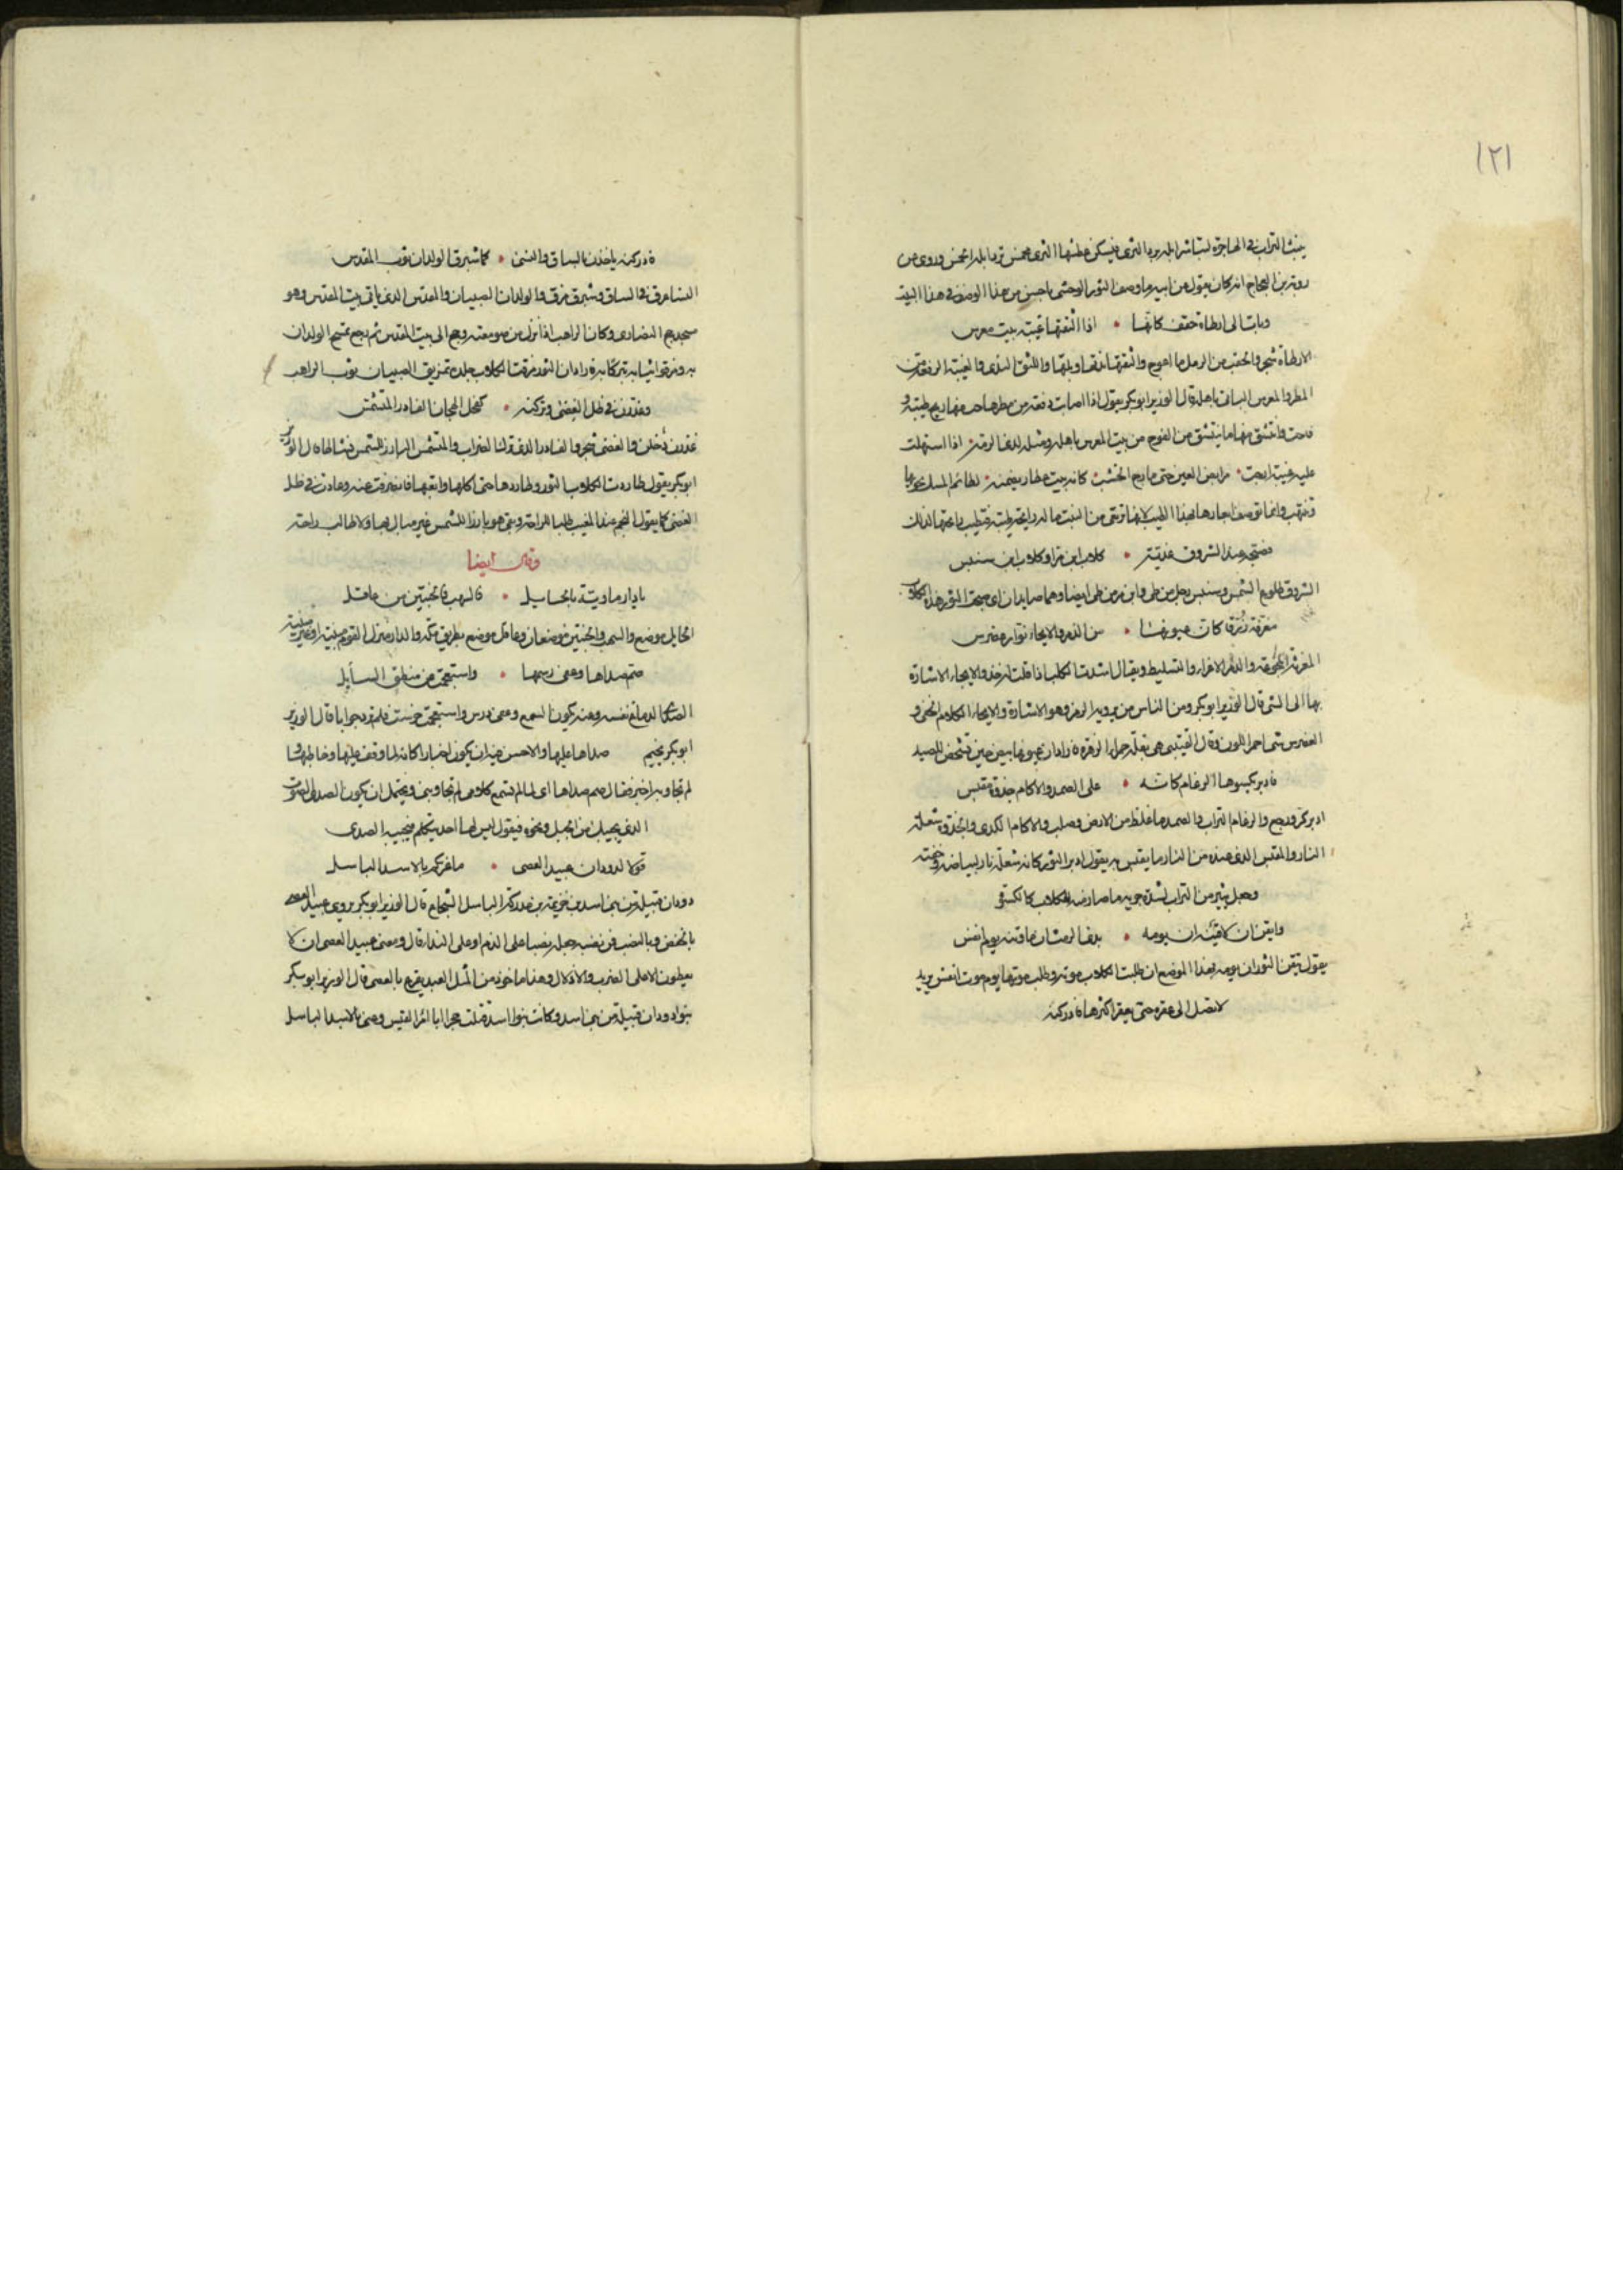 ١٢١
ينبث التراب في الهاجرة ليباشر ابله برد الثرى فيسكن عطشها الثرى مخمس ترد ابله الخمس وروى عن
روبة بن العجاج انه كان يقول عن ابيه ما وصف الثور الوحشي باحسن من هذا الوصف في هذا البيت
وبات الى ارطاة حقف كانها • اذا الثقتها غبية بيت معرس
الارطاة شجر والحقف من الرمل ما اعوج والثقتها ندتها وبلتها واللثق الندى والغبية الدفعة من
المطر والمعرس الباني باهله قال الوزير ابو بكر يقول اذا اصابت دفعة من مطر هاجت منها ريح طيبة و
عليه غبية ارجت • مرابض العين حتى يارج الخشب كانه بيت عطار يضمنه • لطائم المسك يحويها
وتنتهب وانما توصف ابعارها بهذا الطيب لانها ترتعي من النبت ما له رايحة طيبة فتطيب رايحتها لذلك
فصبحه عند الشروق غدية • كلاب ابن مر او كلاب ابن سنبس
الشروق طلوع الشمس وسنبس رجل من طي وابن مر من طي ايضا وهما صايدان اي صبحت الثور هذه الكلاب
مغرثة زرقا كان عيونها • من الذمر والايحاء نوار عضرس
المغرثة المجوعة والذمر الاغراء والتسليط ويقال اشليت الكلب اذا قلت له خذ والايحاء الاشارة
بها الى الشي قال الوزير ابو بكر ومن الناس من يرويه الرمز وهو الاشارة والايحاء الكلام الخفي و
العضرس شي احمر اللون وقال القتيبي هي بقلة حمراء الزهرة فاراد ان عيونها تبيض حين تشخص للصيد
فادبر يكسوها الرغام كانه • على الصمد والاكام جذوة مقبس
ادبر كر ورجع والرغام التراب والصمد ما غلظ من الارض وصلب والاكام الكدى والجذوة شعلة
النار والمقبس الذي عنده من النار ما يقتبس به يقول ادبر الثور كانه شعلة نار لبياضه وخفته
وجعل يثير من التراب لشدة جريه ما صار منه للكلاب كالكسوة
وايقن ان لاقينه ان يومه • بذي الرمث ان ماوتنه يوم انفس
يقول تيقن الثور ان يومه بهذا الموضع ان طلبت الكلاب موته وطلب موتها يوم موت انفس يريد
لا تصل الى عقره حتى يعقر اكثرها فادركنه
فادركنه ياخذن بالساق والنسى • كما شبرق الولدان ثوب المقدس
النسا عرق في الساق وشبرق مزق والولدان الصبيان والمقدس الذي ياتي بيت المقدس وهو
مسجدهم النصارى وكان الراهب اذا نزل من صومعته وحج الى بيت المقدس ثم رجع تمسح الولدان
به ومزقوا ثيابه تبركا به فاراد ان الثور مزقت الكلاب جلده تمزيق الصبيان ثوب الراهب
وغورن في ظل الغضى وتركنه • كفحل الهجان الفادر المتشمس
غورن دخلن والغضى شجر والفادر الذي ترك الضراب والمتشمس البارز للشمس نشاطا قال الوزير
ابو بكر يقول طاردت الكلاب الثور وطاردها حتى اكلها واتعبها فانصرفت عنه وعادت في ظل
الغضى كما يقول النجم عند المغيب طلبا للراحة وبقي هو بارزا للشمس غير مبال بها ولا طالب راحة
وقال ايضا
يا دار ماوية بالحايل • فالسهب فالخبتين من عاقل
الحايل موضع والسهب والخبتين موضعان وعاقل موضع بطريق مكة والدار منزل القوم مبنية او غير مبنية
صم صداها وعفى رسمها • واستعجمت عن منطق السايل
الصدى الدماغ نفسه وعنه يكون السمع وعفى درس واستعجمت خرست فلم ترد جوابا قال الوزير
ابو بكر يخيم صداها عليها والاحسن عندي ان يكون اخبارا كانه لما وقف عليها وخاطبها و
لم تجاوبه اخبر فقال صم صداها اي لما لم تسمع كلامي لم تجاوبني ويحتمل ان يكون الصدى الصوت
الذي يجيبك من الجبل ونحوه فيقول ليس لها احد يتكلم فيجيبه الصدى
قولا لدودان عبيد العصى • ما غركم بالاسد الباسل
دودان قبيلة من بني اسد بن خزيمة بن مدركة الباسل الشجاع قال الوزير ابو بكر يروى عبيد العصى
بالخفض وبالنصب فمن نصبه جعله نصبا على الذم او على النداء قال ومعنى عبيد العصى ان لا
يعطون الا على الضرب والاذلال وهذا ماخوذ من المثل العبد يقرع بالعصى قال الوزير ابو بكر
بنو دودان قبيلة من بني اسد وكانت بنوا اسد قتلت حجرا ابا امرا القيس وعنى بالاسد الباسل